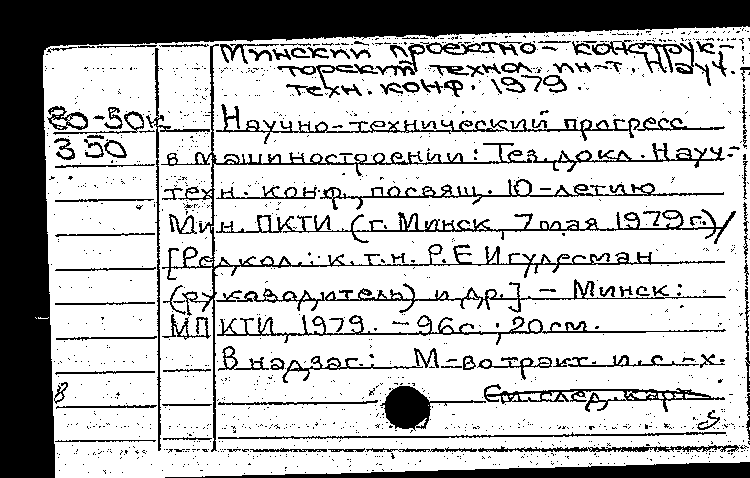 Минский проектно-конструк-
торский технол. ин-т. Науч.-
техн. конф. 1979.
80-50к Научно-технический прогресс
350 в машиностроении: Тез. докл. Науч.-
техн. конф., посвящ. 10-летию
Мин. ПКТИ (г. Минск, 7 мая 1979 г.)/
[Редкол.: к.т.н. Р.Е Игудесман
(руководитель) и др.]. - Минск:
МПКТИ, 1979. - 96с.; 20см.
В надзаг.: М-во тракт. и с.-х.
8 См. след. карт